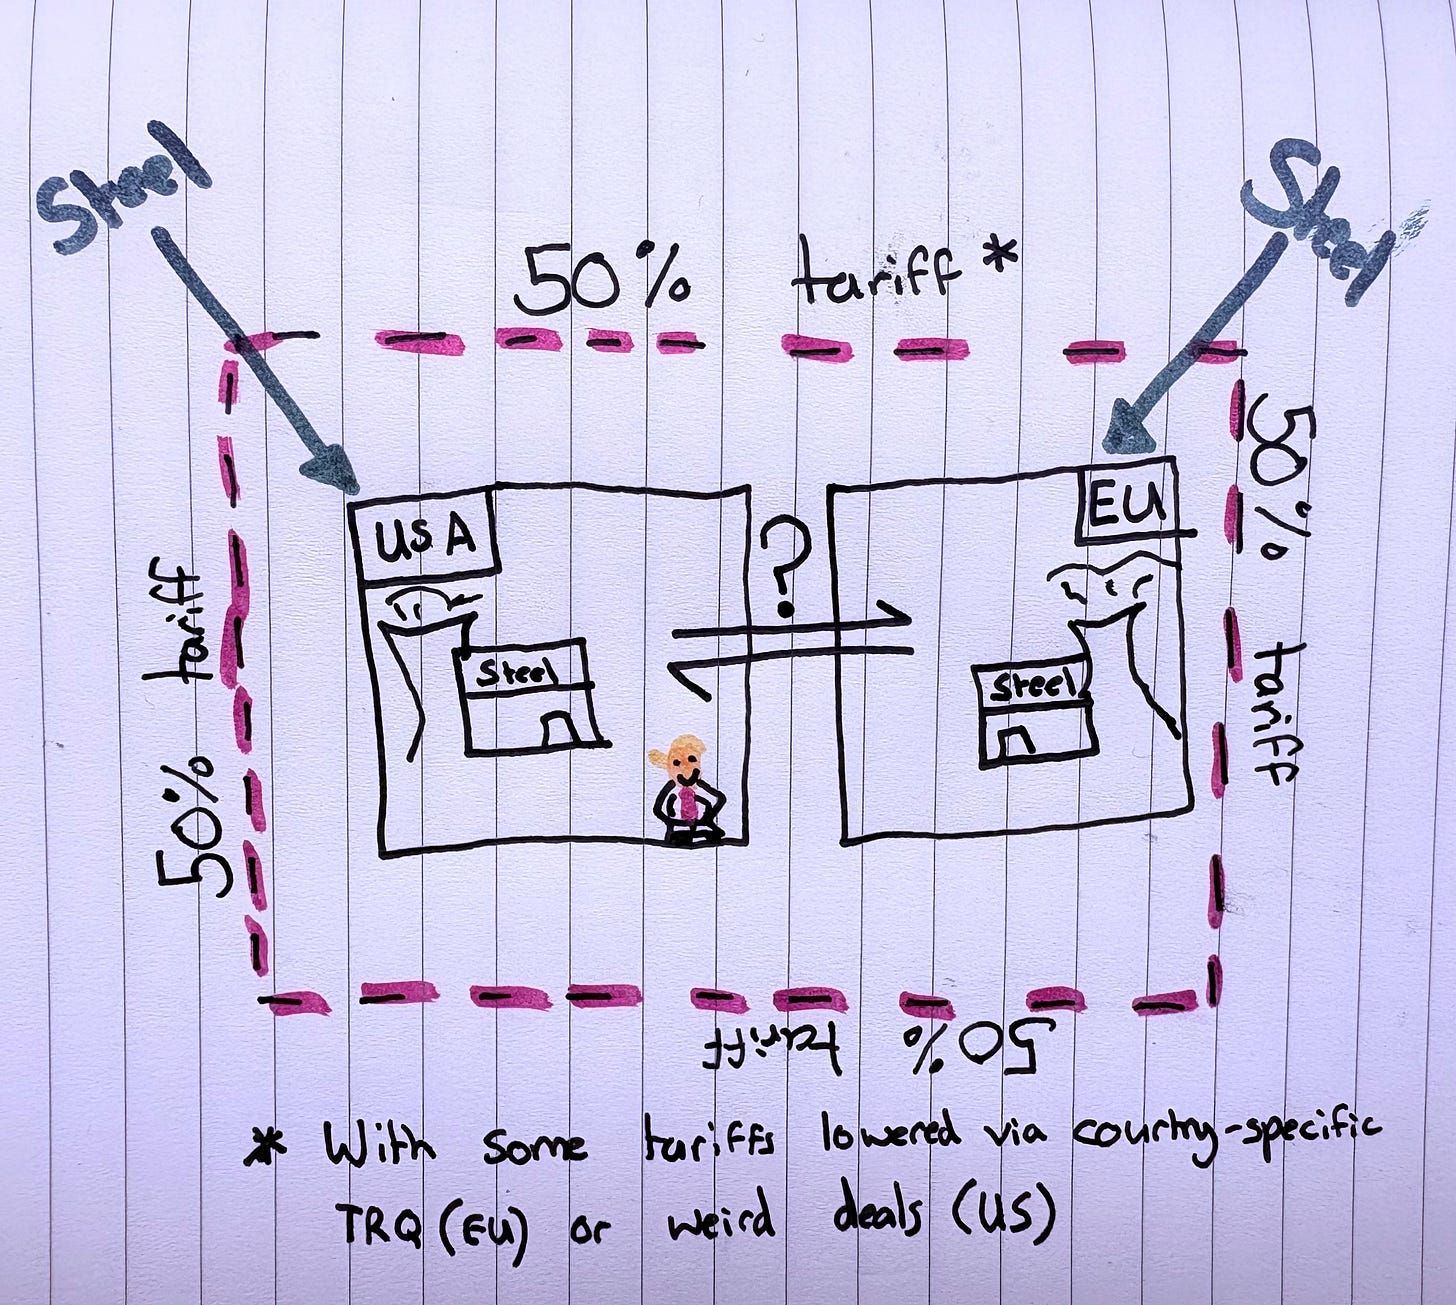 Steel
Steel
50% tariff *
50% tariff
50% tariff
USA
EU
?
Steel
Steel
50% tariff
* With some tariffs lowered via country-specific
TRQ (EU) or weird deals (US)